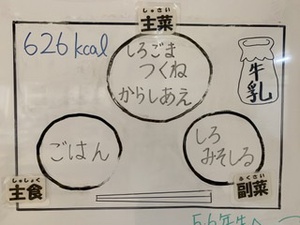 しゅさい
主菜
626kcal
しろごま
つくね
からしあえ
牛乳
ごはん
しろ
みそしる
しゅしょく
主食
ふくさい
副菜
5.6年生へ